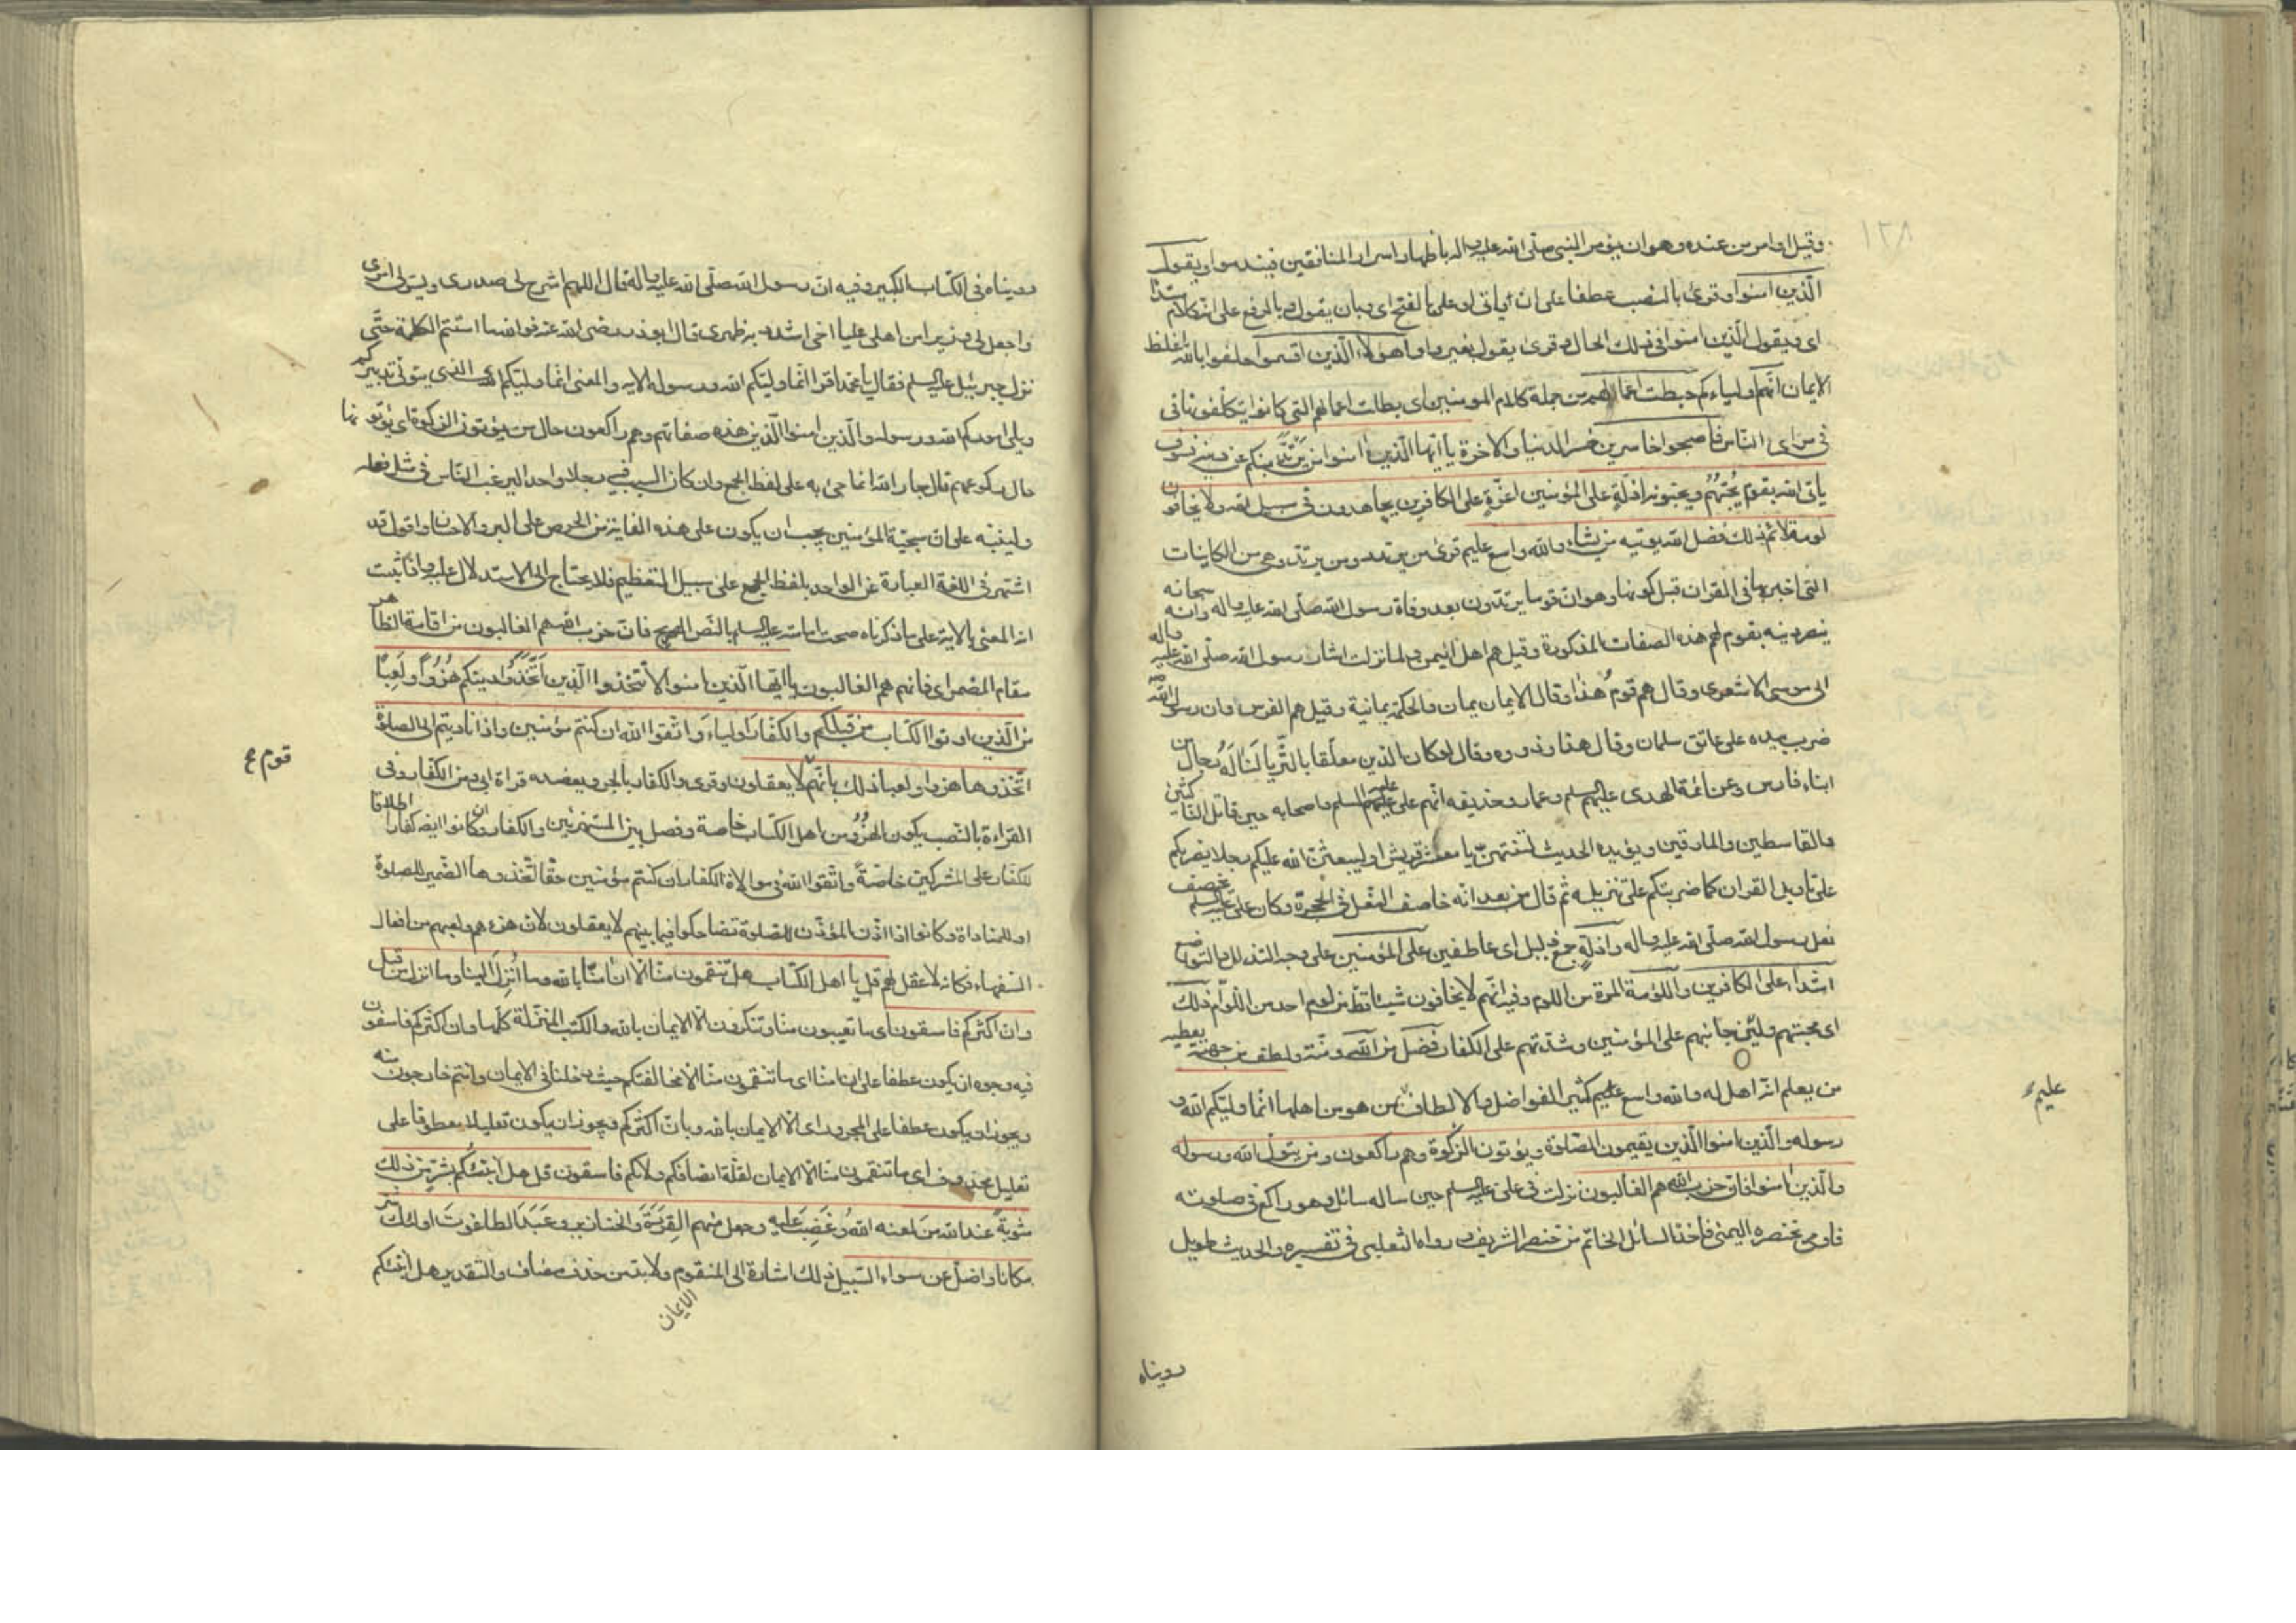 وقيل او امر من عنده وهو ان يؤمر النبى صلى الله عليه واله باظهار اسرار المنافقين فيندموا ويقول
الذين امنوا وقرئ بالنصب عطفا على ان ياتى او على بالفتح اى وبان يقول وبالرفع على انه كلام مبتدا
اى ويقول الذين امنوا فى ذلك الحال وقرئ يقول بغير واو اهؤلاء الذين اقسموا حلفوا بالله باغلظ
الايمان انهم اولياءكم حبطت اعمالهم من جملة كلام المومنين اى بطلت اعمالهم التى كانوا يتكلفونها فى
فى مراى الناس فاصبحوا خاسرين خسر الدنيا والاخرة يا ايها الذين امنوا من يرتد منكم عن دينه فسوف
ياتى الله بقوم يحبهم ويحبونه اذلة على المؤمنين اعزة على الكافرين يجاهدون فى سبيل الله ولا يخافون
لومة لائم ذلك فضل الله يوتيه من يشاء والله واسع عليم قرئ من يرتد ومن يرتدد وهى من الكاينات
التى اخبر بها فى القران قبل كونها وهو ان قوما يرتدون بعد وفاة رسول الله صلى الله عليه واله وانه سبحانه
ينصر دينه بقوم لهم هذه الصفات المذكورة وقيل هم اهل اليمن ولما نزلت اشار رسول الله صلى الله عليه واله
الى موسى الاشعرى وقال هم قوم هذا وقال الايمان يمان والحكمة يمانية وقيل هم الفرس وان رسول الله صلى
ضرب بيده على عاتق سلمان وقال هذا وذووه وقال لو كان الدين معلقا بالثريا لناله رجال من
ابناء فارس وعن ائمة الهدى عليهم السلم وعمار وحذيفه انهم على عليه السلم واصحابه حين قاتل الناكثين
والقاسطين والمارقين ويؤيده الحديث لتنتهن يا معشر قريش او ليبعثن الله عليكم رجلا يضربكم
على تاويل القران كما ضربتكم على تنزيله ثم قال من بعد انه خاصف النعل فى الحجرة وكان على عليه السلم يخصف
نعل رسول الله صلى الله عليه واله واذلة جمع ذليل اى عاطفين على المؤمنين على وجه التذلل والتواضع
اشداء على الكافرين واللومة المرة من اللوم وفيه انهم لا يخافون شيئا قط من لوم احد من اللوام ذلك
اى محبتهم ولين جانبهم على المؤمنين وشدتهم على الكفار فضل من الله ومنة ولطف من جهته يعطيه
من يعلم انه اهل له والله واسع عليم كثير الفواضل والالطاف بمن هو من اهلها انما وليكم الله و
رسوله والذين امنوا الذين يقيمون الصلوة ويؤتون الزكوة وهم راكعون ومن يتول الله ورسوله
والذين امنوا فان حزب الله هم الغالبون نزلت فى على عليه السلم حين ساله سائل وهو راكع فى صلوته
فاومى بخنصره اليمنى فاخذ السائل الخاتم من خنصره الشريف رواه الثعلبى فى تفسيره والحديث طويل
عليم
رويناه
رويناه فى الكتاب الكبير وفيه ان رسول الله صلى الله عليه واله قال اللهم اشرح لى صدرى ويسر لى امرى
واجعل لى وزيرا من اهلى عليا اخى اشدد به ظهرى قال ابوذر رضى الله عنه فوالله ما استتم الكلمة حتى
نزل جبرئيل عليه السلم فقال يا محمد اقرا انما وليكم الله ورسوله الاية والمعنى انما وليكم الذى يتولى تدبيركم
ويلى اموركم الله ورسوله والذين امنوا الذين هذه صفاتهم وهم راكعون حال من يؤتون الزكوة اى يؤتونها
حال ركوعهم قال جار الله انما جئ به على لفظ الجمع وان كان السبب فيه رجلا واحدا ليرغب الناس فى مثل فعله
ولينبه على ان سجية المؤمنين يجب ان يكون على هذه الغاية من الحرص على البر والاحسان واقول قد
اشتهر فى اللغة العبارة عن الواحد بلفظ الجمع على سبيل التعظيم فلا يحتاج الى الاستدلال عليه واذا ثبت
ان المعنى بالاية على ما ذكرناه صحت امامته عليه السلم بالنص الصريح فان حزب الله هم الغالبون من اقامة الظاهر
مقام المضمر اى فانهم هم الغالبون يا ايها الذين امنوا لا تتخذوا الذين اتخذوا دينكم هزوا ولعبا
من الذين اوتوا الكتاب من قبلكم والكفار اولياء واتقوا الله ان كنتم مؤمنين واذا ناديتم الى الصلوة
اتخذوها هزوا ولعبا ذلك بانهم لا يعقلون وقرئ والكفار بالجر ويعضده قراة ابى ومن الكفار وفى
القراءة بالنصب يكون الهزؤ من اهل الكتاب خاصة وفصل بين المستهزئين والكفار وان كانوا ايضا كفارا اطلاقا
للكفار على المشركين خاصة واتقوا الله فى موالاة الكفار ان كنتم مؤمنين حقا اتخذوها الضمير للصلوة
او للمناداة وكانوا اذا اذن المؤذن للصلوة تضاحكوا فيما بينهم لا يعقلون لان هزءهم ولعبهم من افعال
السفهاء فكانه لا عقل لهم قل يا اهل الكتاب هل تنقمون منا الا ان امنا بالله وما انزل الينا وما انزل من قبل
وان اكثركم فاسقون اى ما تعيبون منا وتنكرون الا الايمان بالله والكتب المنزلة كلها وان اكثركم فاسقون
فيه وجوه ان يكون عطفا على ان امنا اى ما تنقمون منا الا مخالفتكم حيث دخلنا فى الايمان وانتم خارجون منه
ويجوز ان يكون عطفا على المجرور اى الا الايمان بالله وبان اكثركم ويجوز ان يكون تعليلا معطوفا على
تعليل محذوف اى ما تنقمون منا الا الايمان لقلة انصافكم ولانكم فاسقون قل هل انبئكم بشر من ذلك
مثوبة عند الله من لعنه الله وغضب عليه وجعل منهم القردة والخنازير وعبد الطاغوت اولئك شر
مكانا واضل عن سواء السبيل ذلك اشارة الى المنقوم ولا بد من حذف مضاف والتقدير هل انبئكم
قوم ع
الايمان